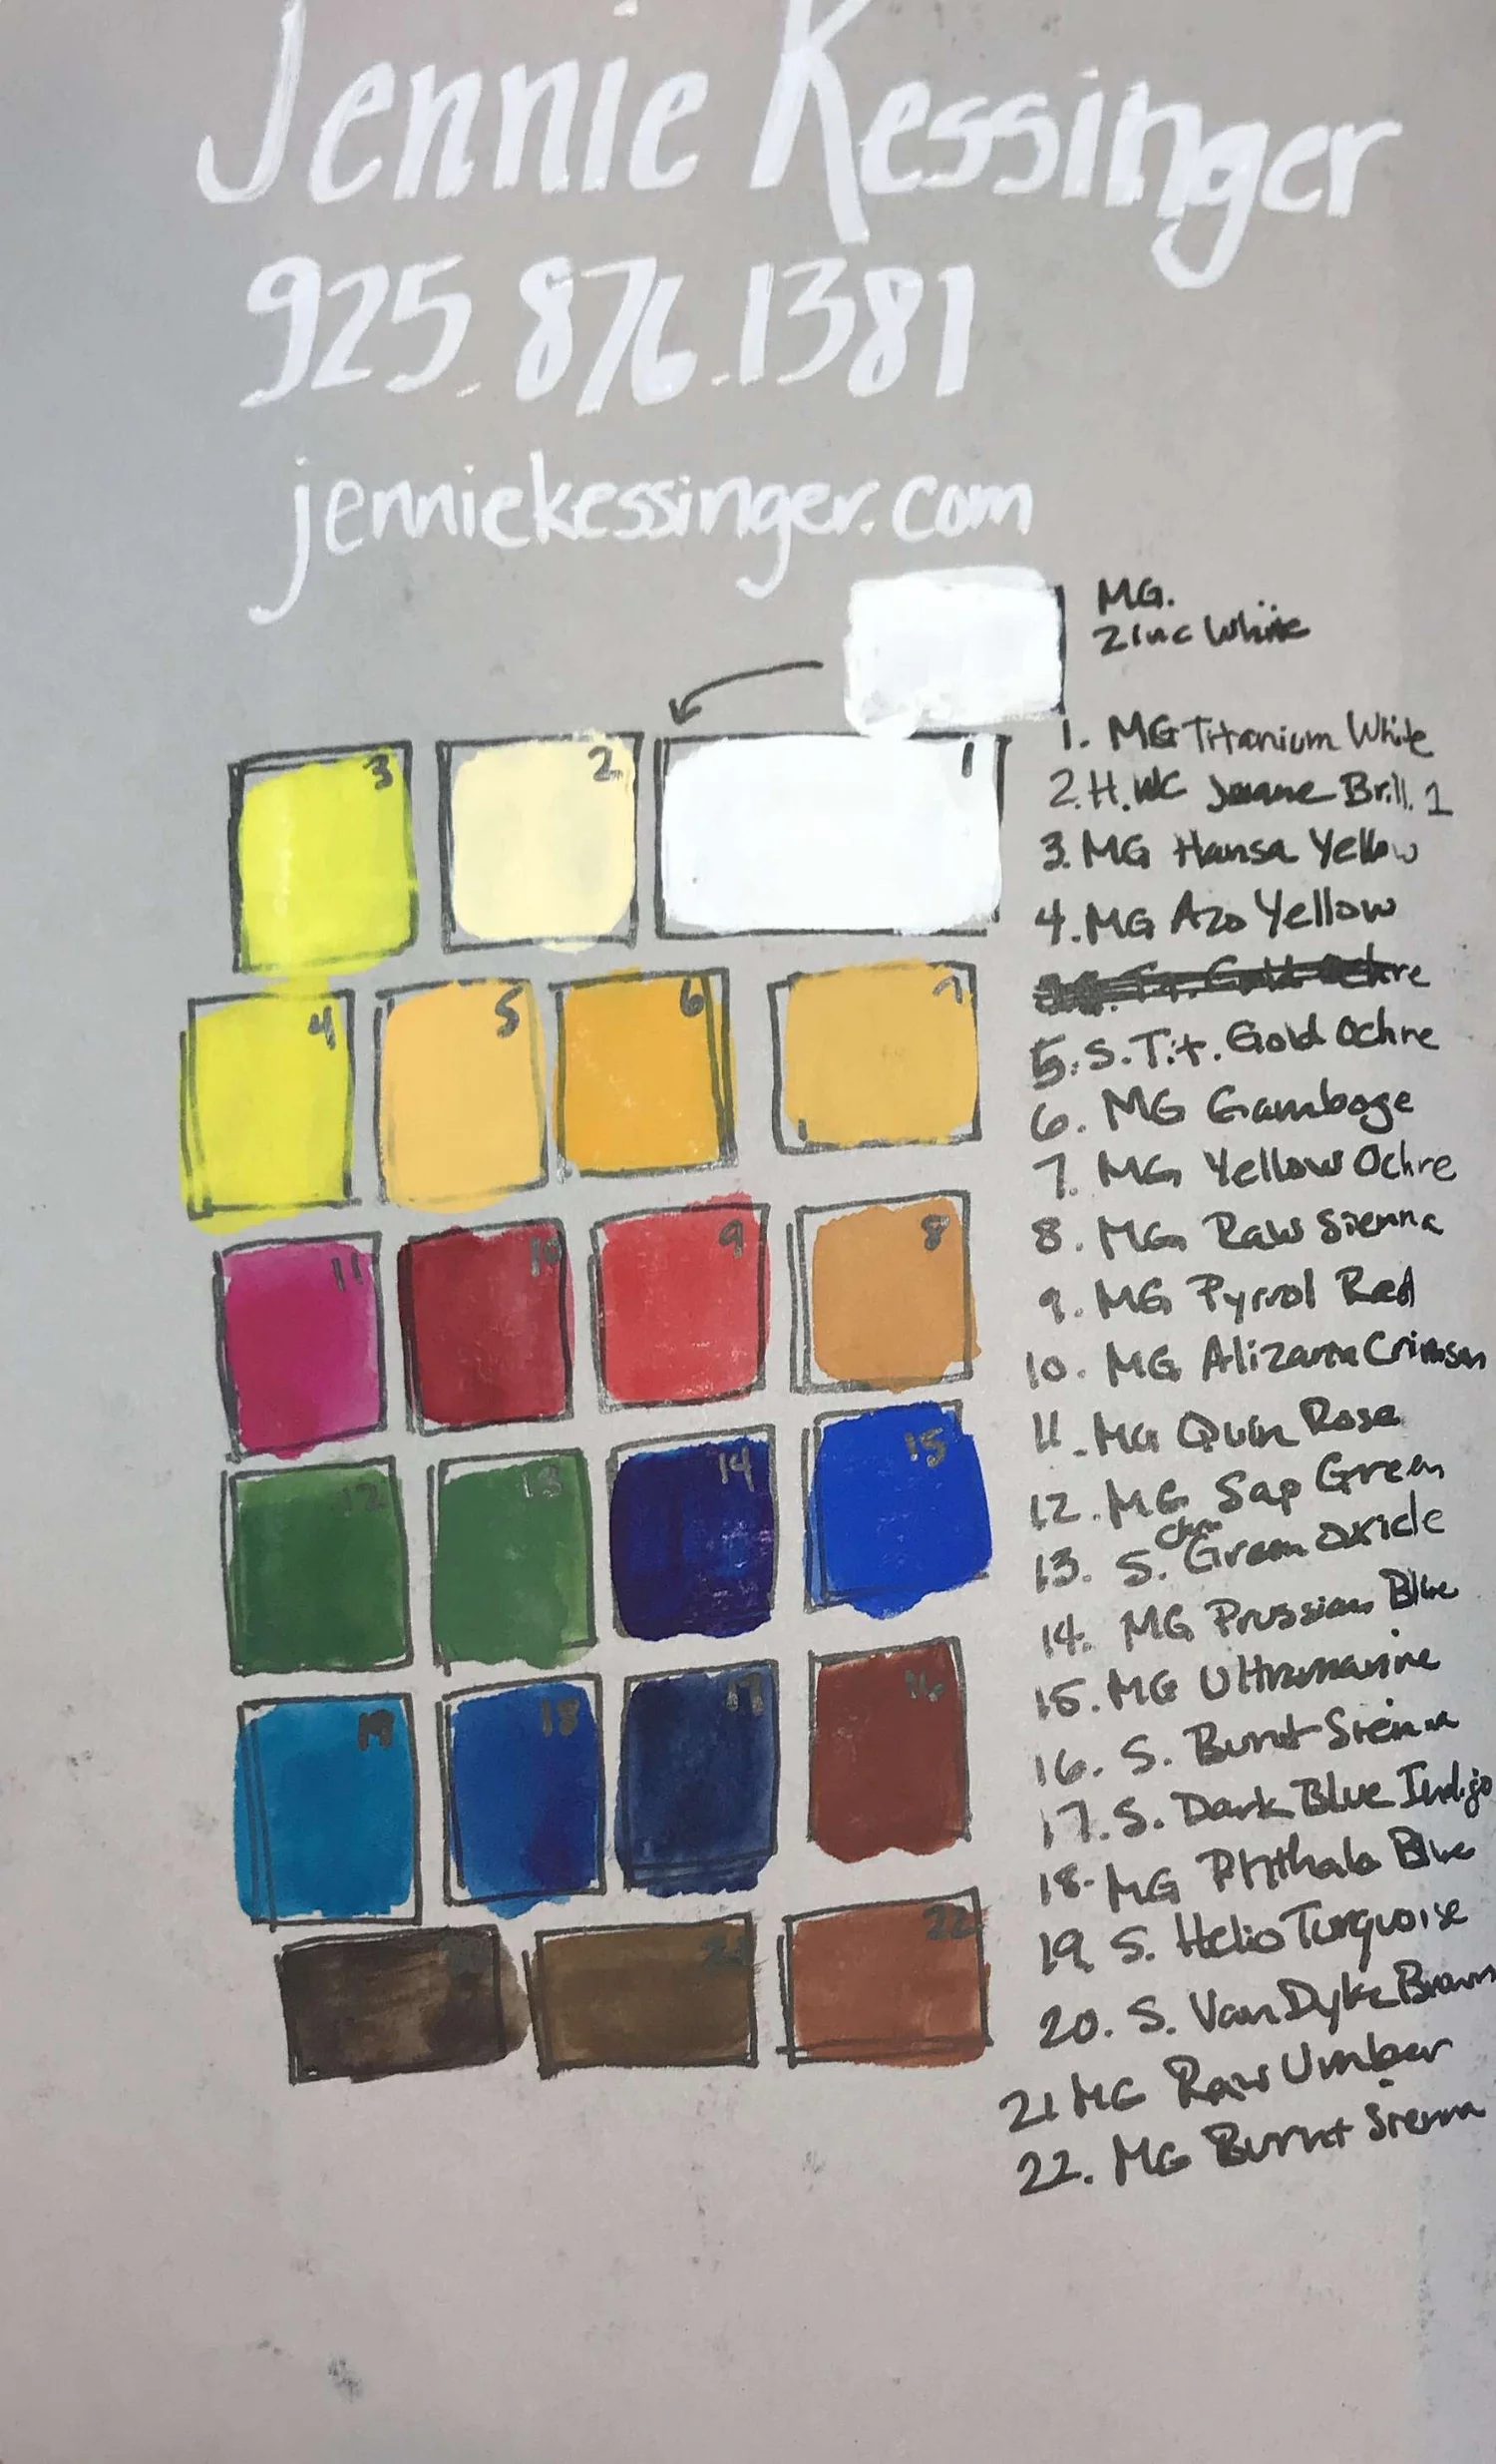 Jennie Kessinger
925.876.1381
jenniekessinger.com
MG.
Zinc White
3 2 1
1. MG Titanium White
2. H. WC Jaune Brill. 1
3. MG Hansa Yellow
4. MG Azo Yellow
Gold Ochre
4 5 6 7
5. S. Tit. Gold Ochre
6. MG Gamboge
7. MG Yellow Ochre
11 10 9 8
8. MG Raw Sienna
9. MG Pyrrol Red
10. MG Alizarin Crimson
11. MG Quin Rose
12 13 14 15
12. MG Sap Green
13. S. Chro Green Oxide
14. MG Prussian Blue
15. MG Ultramarine
19 18 17 16
16. S. Burnt Sienna
17. S. Dark Blue Indigo
18. MG Phthalo Blue
22
19. S. Helio Turquoise
20. S. Van Dyke Brown
21 MG Raw Umber
22. MG Burnt Sienna